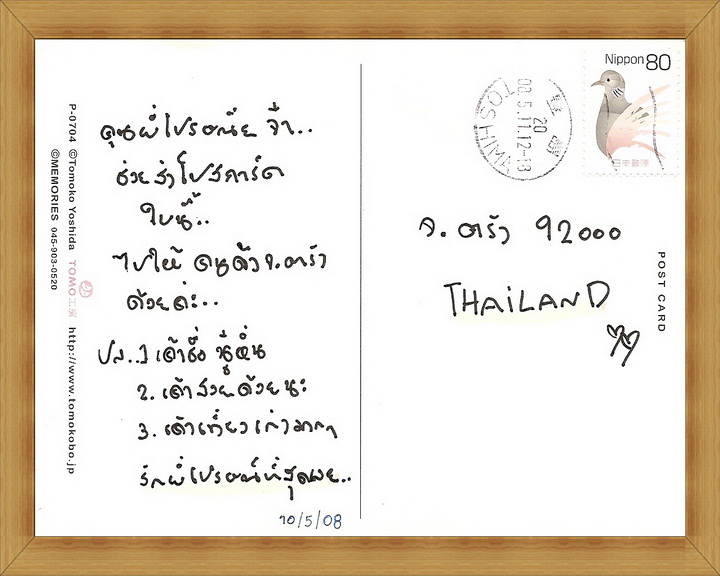 P-0704 ©Tomoko Yoshida TOMO工房 http://www.tomokobo.jp
©MEMORIES 045-903-0520
คุณพี่ไปรษณีย์ จ๋า..
ช่วยส่งโปสการ์ด
ใบนี้..
ไปให้ คนตัวจ.ตรัง
ด้วยค่ะ..
ปล..1 เค้าชื่อ
2. เค้าสวยด้วยนะ
3. เค้าเที่ยวเก่งมากๆ
รักพี่ไปรษณีย์ที่สุดเลย..
10/5/08
Nippon 80
日本郵便
TOSHIMA
豊島
20
08.5.11.12-18
จ. ตรัง 92000
THAILAND
POST CARD